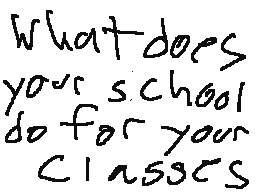 What does
your school
do for your
classes